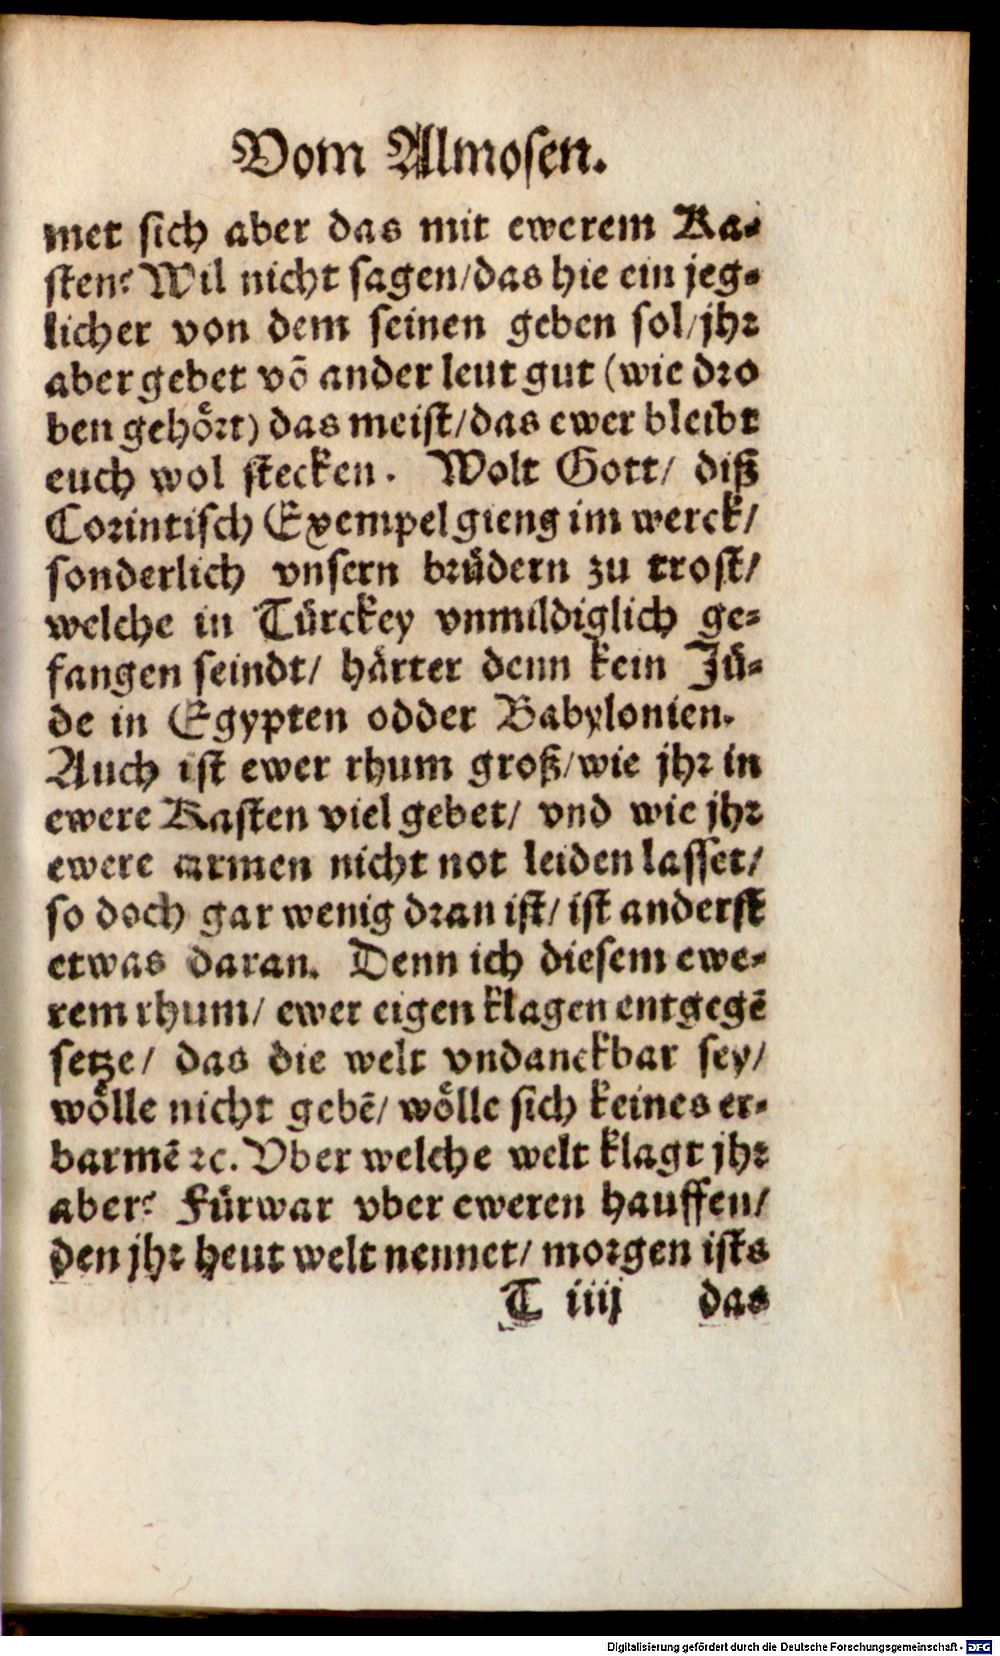 Vom Almosen.
met sich aber das mit ewerem Ka-
sten? Wil nicht sagen/das hie ein jeg-
licher von dem seinen geben sol/jhr
aber gebet võ ander leut gut (wie dro
ben gehört) das meist/das ewer bleibt
euch wol stecken. Wolt Gott/ diß
Corintisch Exempel gieng im werck/
sonderlich vnsern brüdern zu trost/
welche in Türckey vnmildiglich ge-
fangen seindt/ härter denn kein Jü-
de in Egypten odder Babylonien.
Auch ist ewer rhum groß/wie jhr in
ewere Kasten viel gebet/ vnd wie jhr
ewere armen nicht not leiden lasset/
so doch gar wenig dran ist/ ist anderst
etwas daran. Denn ich diesem ewe-
rem rhum/ ewer eigen klagen entgegẽ
setze/ das die welt vndanckbar sey/
wölle nicht gebẽ/ wölle sich keines er-
barmẽ ꝛc. Vber welche welt klagt jhr
aber? Fürwar vber eweren hauffen/
den jhr heut welt nennet/ morgen ists
T iiij das
Digitalisierung gefördert durch die Deutsche Forschungsgemeinschaft - DFG